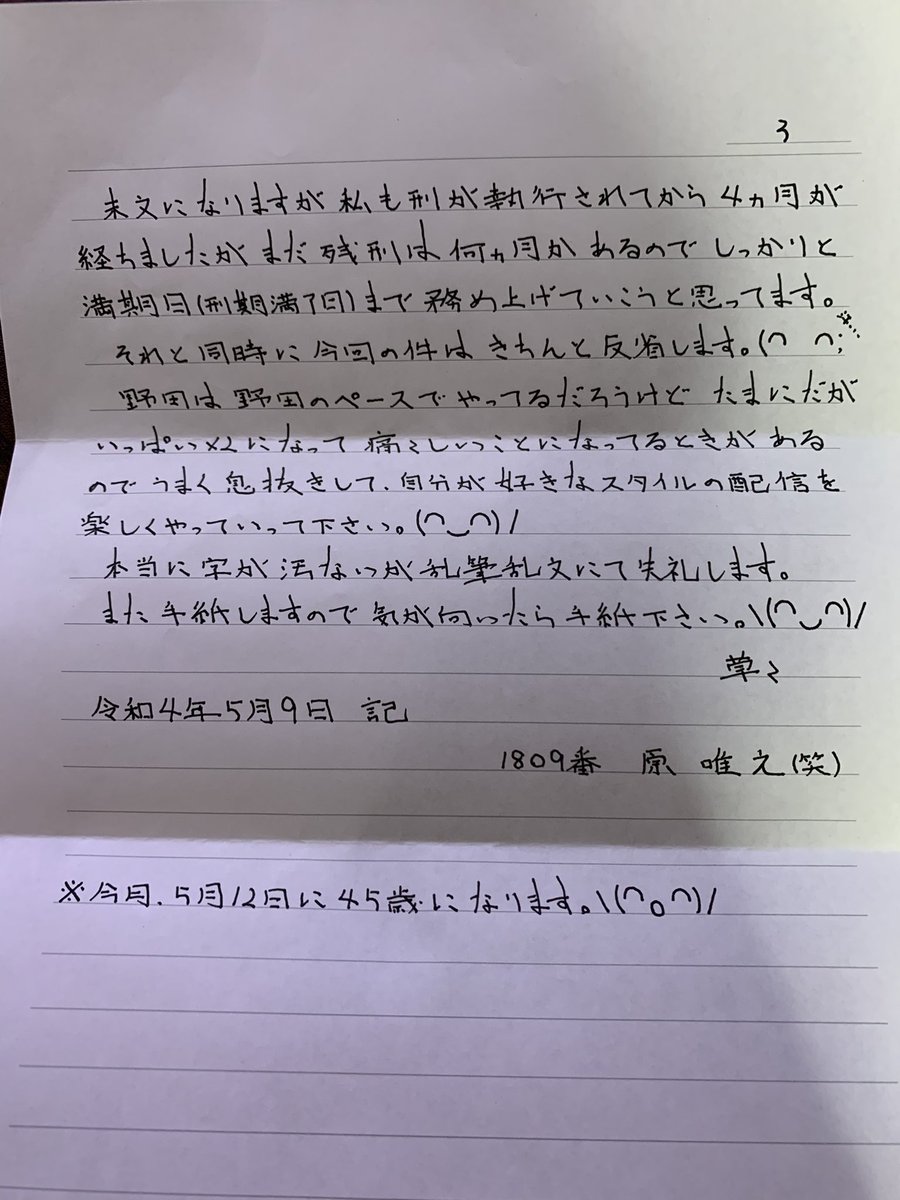 3
末文になりますが 私も刑が執行されてから 4ヵ月が
経ちましたが まだ 残刑は 何ヵ月か あるので しっかりと
満期日(刑期満了日)まで 務め上げていこうと思ってます。
それと同時に 今回の件は きちんと 反省します。(⌒ ⌒;
野田は 野田のペースで やってるだろうけど たまにだが
いっぱい×2になって 痛々しいことになってるときが ある
ので うまく 息抜きして、自分が 好きなスタイルの配信を
楽しくやっていって下さい。(⌒‿⌒)/
本当に 字が 汚ないが 乱筆乱文にて 失礼します。
また 手紙しますので 気が向いたら 手紙下さい。\(⌒‿⌒)/
草々
令和4年5月9日 記
1809番 原 唯之(笑)
※今月、5月12日に 45歳になります。\(⌒o⌒)/